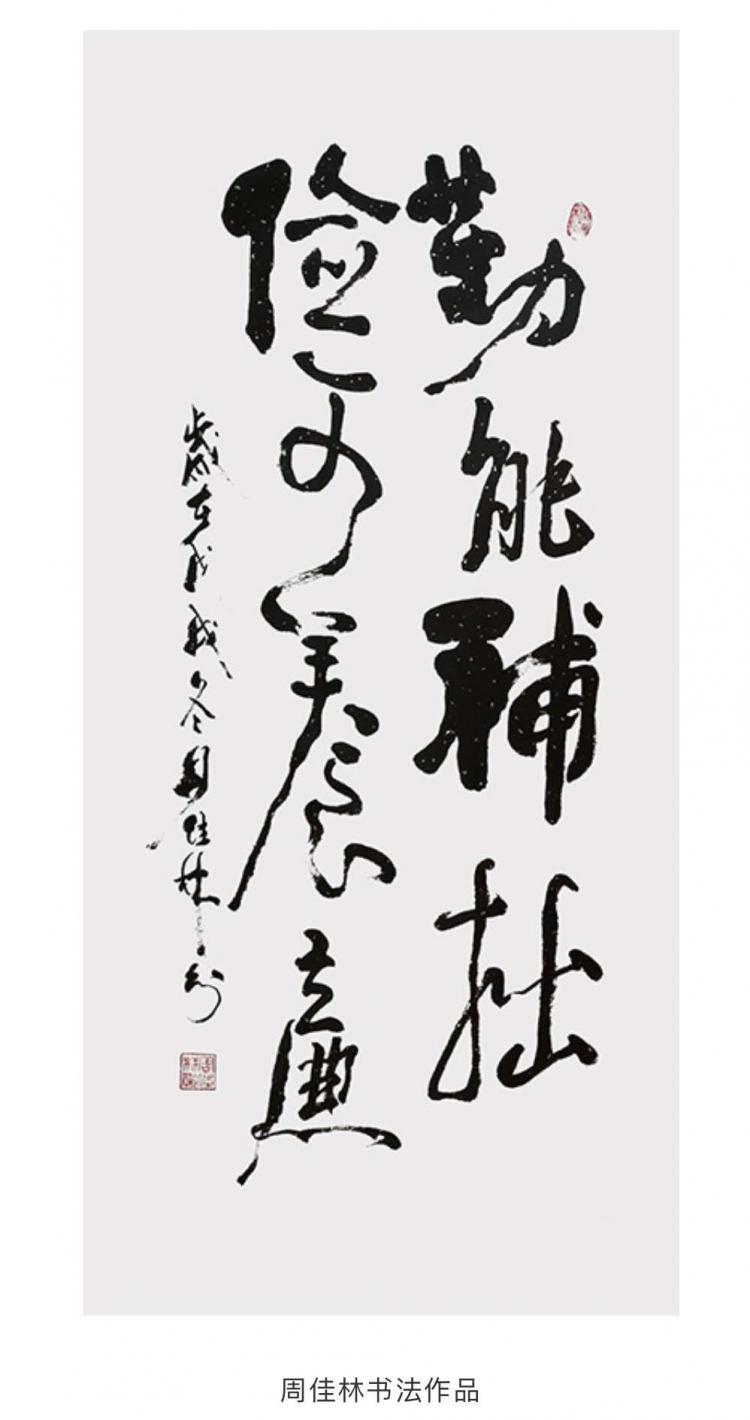 勤能補拙
儉可養廉
歲在戊戌冬周佳林書
周佳林书法作品